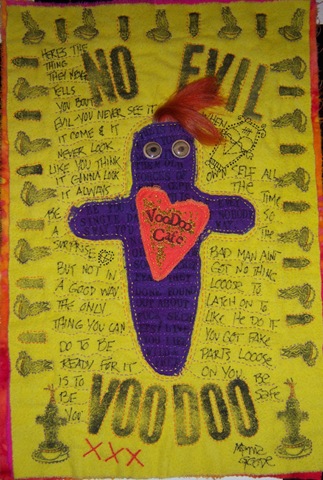 NO EVIL
HERE'S THE
THING
THEY NEVER
TELLS
YOU BOUT
EVIL YOU NEVER SEE IT WHEN
IT COME & IT
NEVER LOOK
LIKE YOU THINK
IT GONNA LOOK
IT ALWAYS
BE
A
SURPRISE
BUT NOT IN
A GOOD WAY
THE ONLY
THING YOU CAN
DO TO BE
READY FOR IT
IS TO
BE
YOU
SELF ALL
THE
TIME
SO
THE
BAD MAN AIN'T
GOT NO THING
LOOOSE TO
LATCH ON TO
LIKE HE DO IF
YOU GOT FAKE
PARTS LOOOSE
ON YOU. BE
SAFE
VOODOO
CAFE
VOODOO
XXX